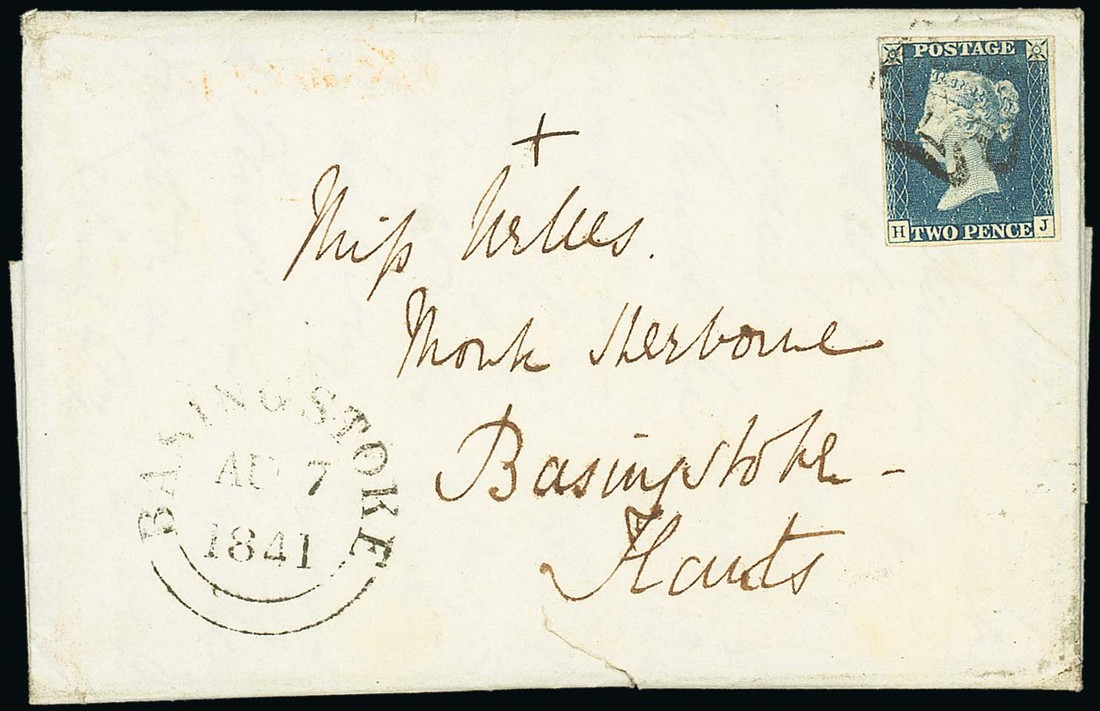 POSTAGE
TWO PENCE
H J
+
Miss
Monk Sherborne
Basingstoke -
Hants
BASINGSTOKE
AU 7
1841